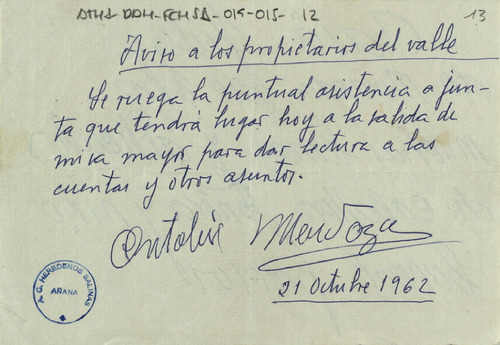 ATHA-DAH-FCHSA-015-015-12
13
Aviso a los propietarios del valle
Se ruega la puntual asistencia a jun-
ta que tendrá lugar hoy a la salida de
misa mayor para dar lectura a las
cuentas y otros asuntos.
Antolín Mendoza
21 Octubre 1962
A. C. HEREDEROS SALINAS
AÑANA